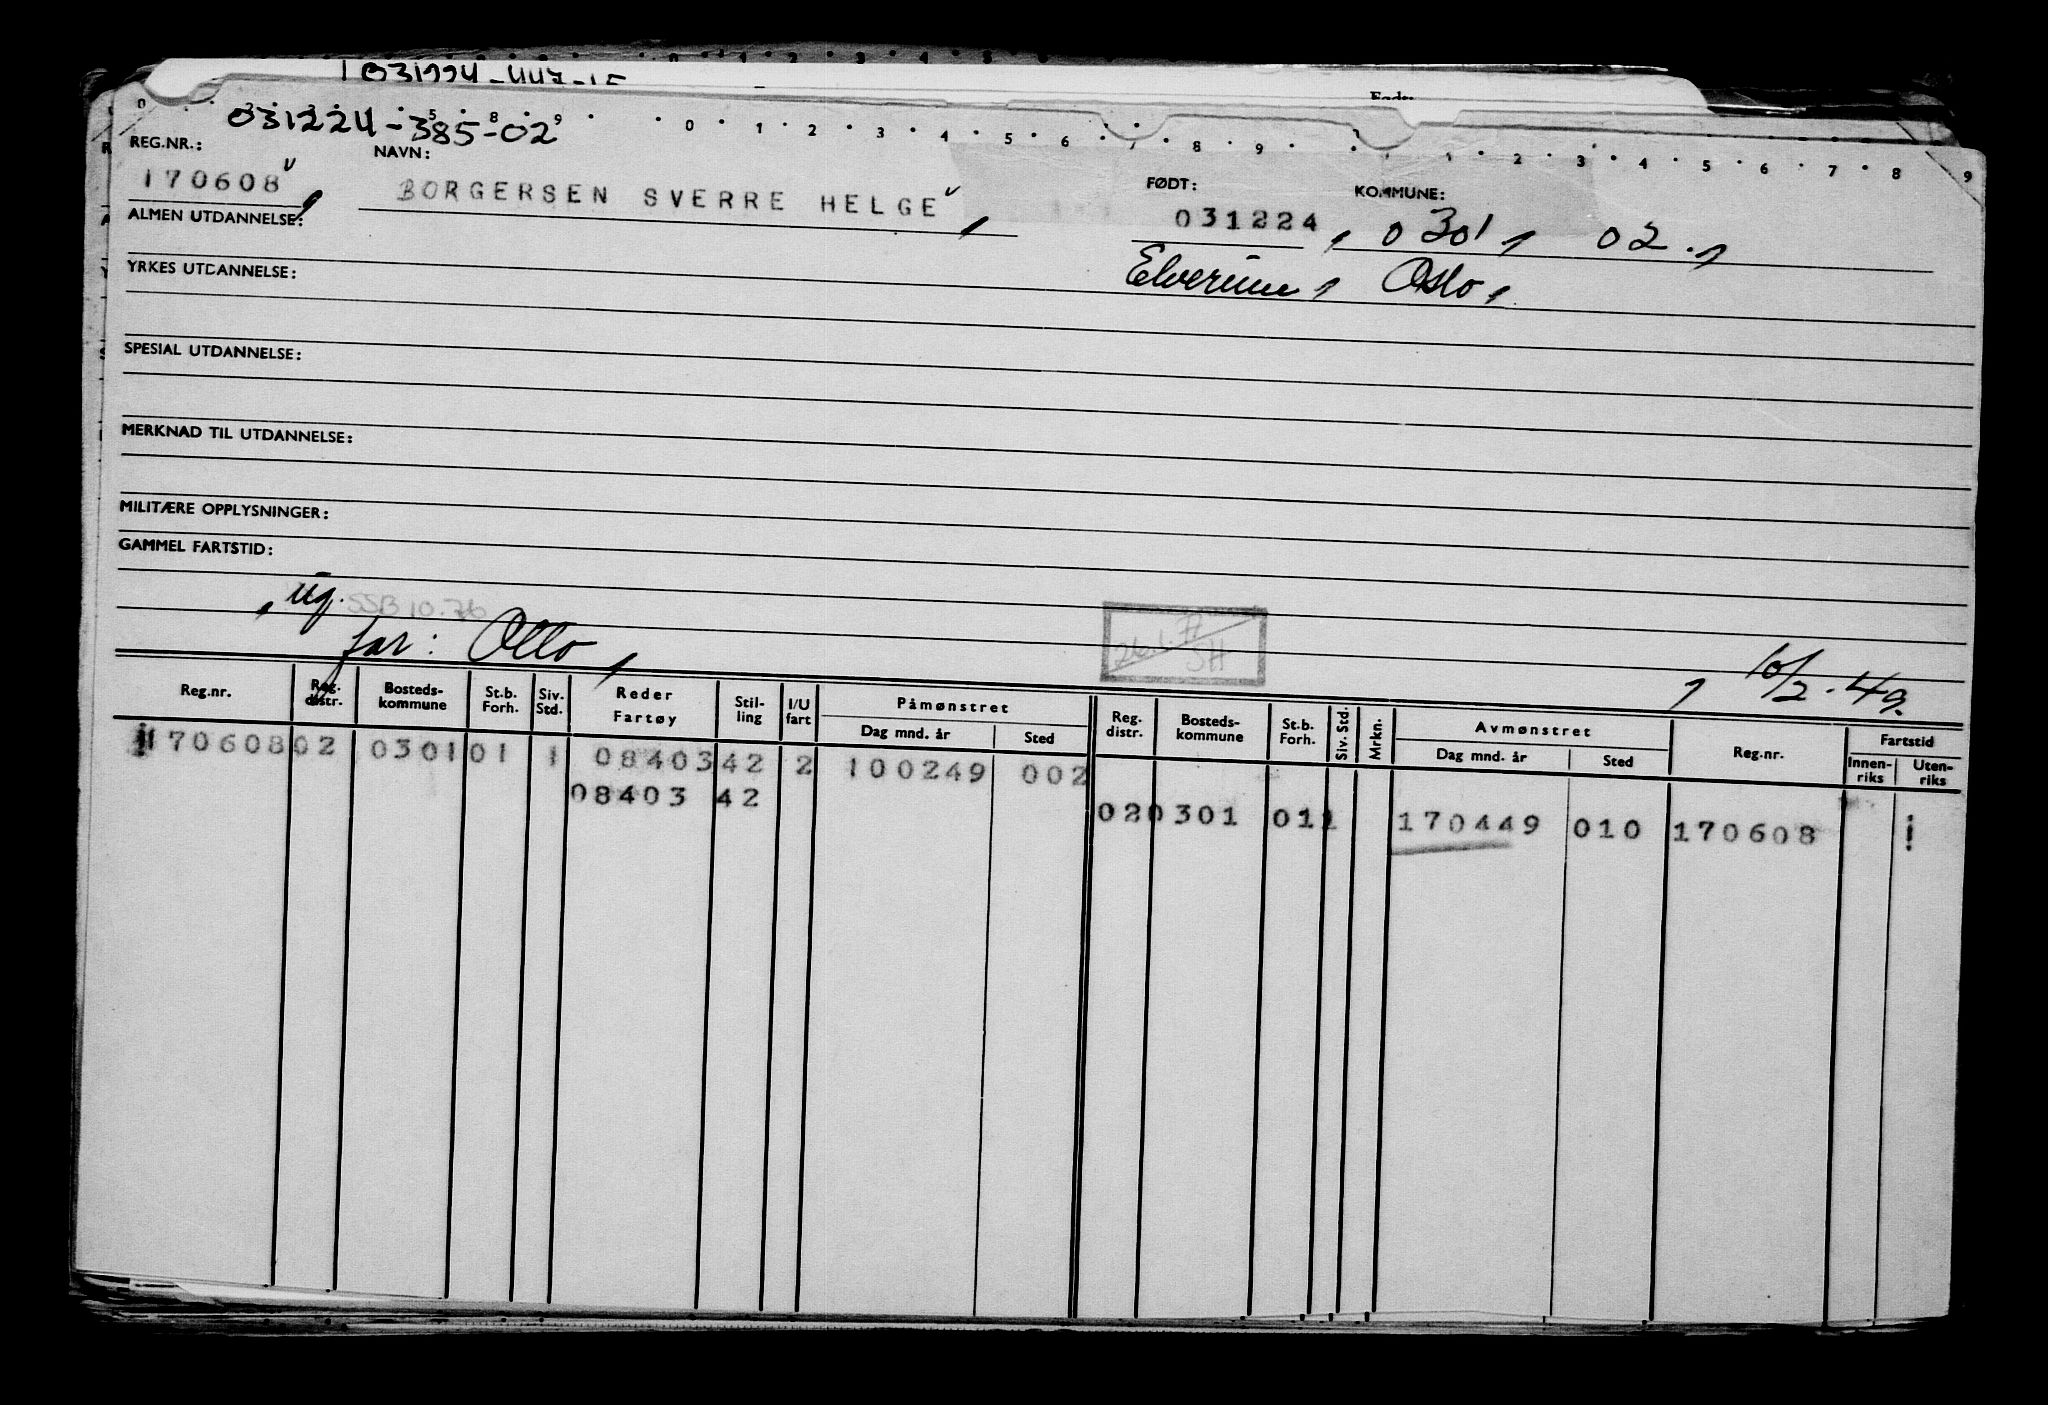 031224-385-02
0 1 2 3 4 5 6 7 8 9 1 2 3 4 5 6 7 8 9
REG.NR.: NAVN: FØDT: KOMMUNE:
170608 BORGERSEN SVERRE HELGE 031224, 0301, 02.,
ALMEN UTDANNELSE:
Elverum, Oslo,
YRKES UTDANNELSE:
SPESIAL UTDANNELSE:
MERKNAD TIL UTDANNELSE:
MILITÆRE OPPLYSNINGER:
GAMMEL FARTSTID:
, ug. SSB 10.76
far: Otto,
SH
, 10/2-49.
Reg.nr. Reg. distr. Bosteds-kommune St.b. Forh. Siv. Std. Reder Fartøy Stil-ling I/U fart Påmønstret Dag mnd. år Sted Reg. distr. Bosteds-kommune St.b. Forh. Siv. Std. Mrkn. Avmønstret Dag mnd. år Sted Reg.nr. Fartstid Innen-riks Uten-riks
170608 02 0301 01 1 08403 42 2 100249 002
08403 42 02 0301 01 1 170449 010 170608